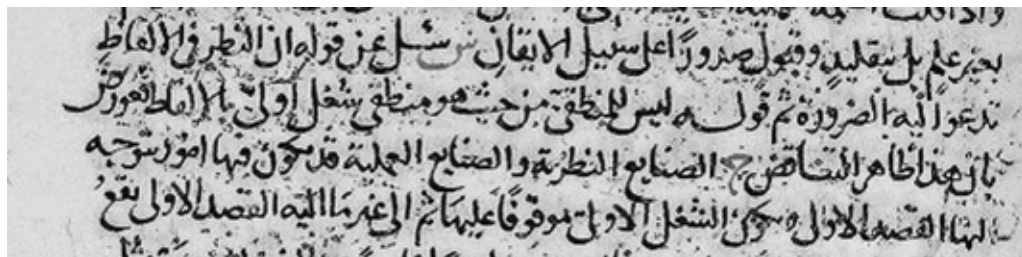 بغير علم بل بتقليد وقبول صدورا على سبيل الايقان س سئل عن قوله ان النظر في الالفاظ
تدعوا اليه الضرورة ثم قوله ليس للمنطقي من حيث هو منطقي شغل اولى بالالفاظ فعورض
بان هذا ظاهر التناقض ج الصنايع النظرية والصنايع العملية قد يكون فيها امور يتوجه
اليها القصد الاول ويكون الشغل الاول موقوفا عليها ثم الى غير ما اليه القصد الاولى يقع